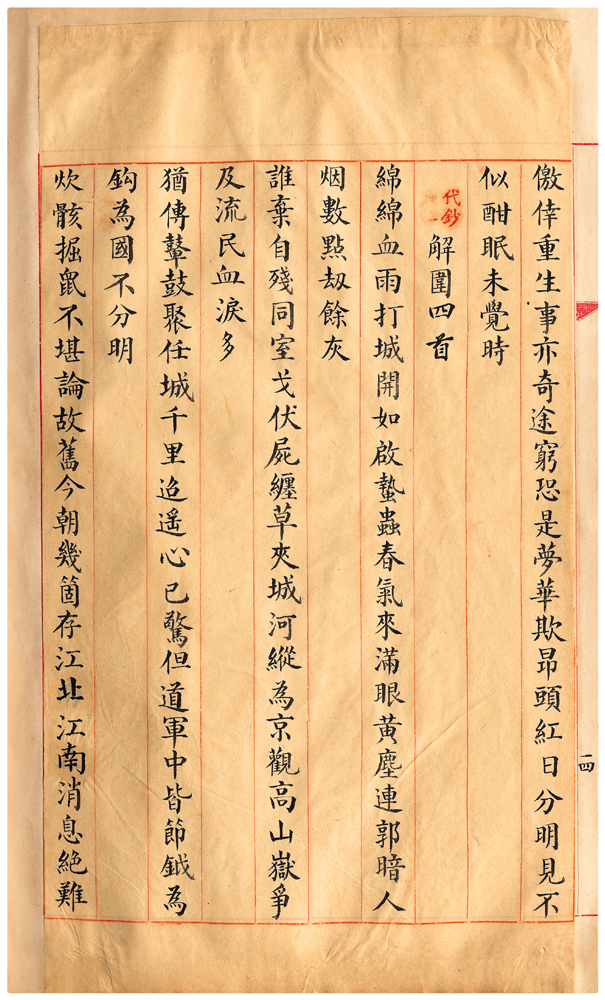 儌倖重生事亦奇途窮恐是夢華欺昂頭紅日分明見不
似酣眠未覺時
代鈔一
解圍四首
綿綿血雨打城開如啟蟄蟲春氣來滿眼黃塵連郭暗人
烟數點刼餘灰
誰棄自殘同室戈伏屍纏草夾城河縱為京觀高山嶽爭
及流民血淚多
猶傳鼙鼓聚任城千里迢遥心已驚但道軍中皆節鉞為
鈎為國不分明
炊骸掘鼠不堪論故舊今朝幾箇存江北江南消息絕難
一四